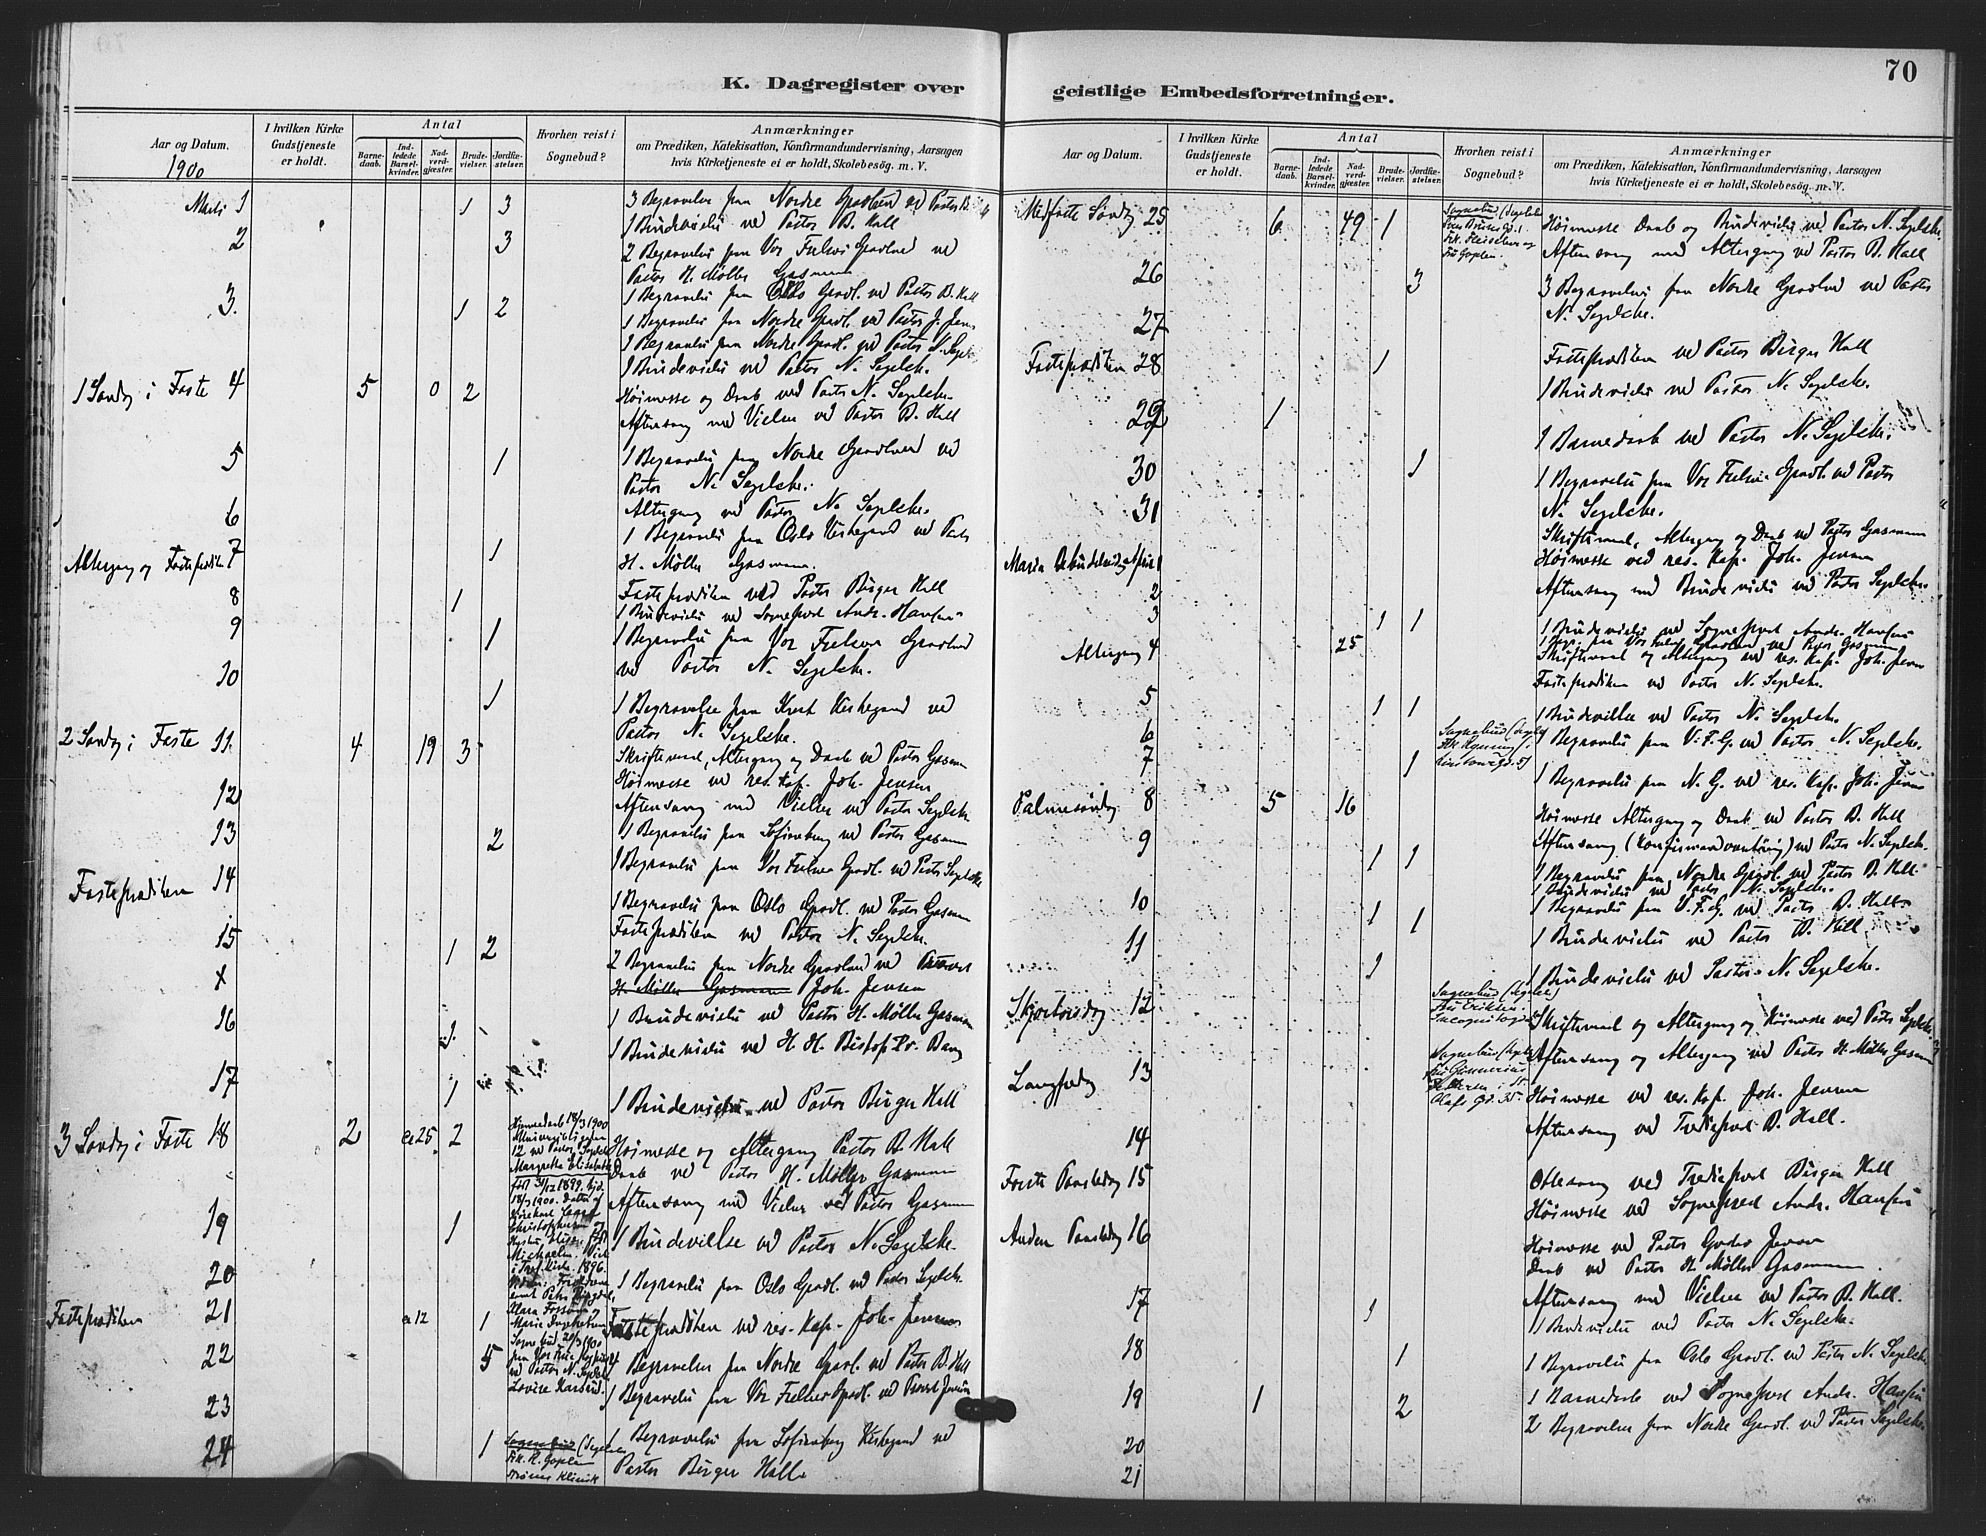 70
K. Dagregister over geistlige Embedsforretninger.
Aar og Datum.
I hvilken Kirke Gudstjeneste er holdt.
Antal
Barnedaab.
Indledede Barselkvinder.
Nadverdgjæster.
Brudevielser.
Jordfæstelser.
Hvorhen reist i Sognebud?
Anmærkninger
om Prædiken, Katekisation, Konfirmandundervisning, Aarsagen
hvis Kirketjeneste ei er holdt, Skolebesög. m. V.
1900
Marts 1 1 3 3 Begravelser fra Nordre Gravlund ved Pastor B.
1 Brudevielse ved Pastor B. Hall
2 3 2 Begravelser fra Vor Frelsers Gravlund ved
Pastor H. Møller Gasmann
1 Begravelse fra Oslo Gravl. ved Pastor B. Hall
3. 1 2 1 Begravelse fra Nordre Gravl. ved Pastor J. Jensen
1 Begravelse fra Nordre Gravl. ved Pastor N.
1 Brudevielse ved Pastor N. Segelcke.
1 Søndag i Faste 4 5 0 2 Høimesse og Daab ved Pastor N. Segelcke
Aftensang med Vielser ved Pastor B. Hall
5 1 1 Begravelse fra Nordre Gravlund ved
Pastor N. Segelcke.
6 Altergang ved Pastor N. Segelcke.
Altergang og Fasteprædiken 7 1 1 Begravelse fra Oslo Kirkegaard ved Pastor
H. Møller Gasmann.
Fasteprædiken ved Pastor Birger Hall
8 1 1 Brudevielse ved Sognepræst Andr. Hansen
9 1 1 Begravelse fra Vor Frelsers Gravlund
ved Pastor N. Segelcke.
10 1 1 Begravelse fra Krist Kirkegaard ved
Pastor N. Segelcke.
2 Søndag i Faste 11. 4 19 3 Skriftemaal, Altergang og Daab ved Pastor Gasmann
Høimesse ved res. Kap. Joh. Jensen
12 Aftensang med Vielser ved Pastor Segelcke
13 2 1 Begravelse fra Sofienberg ved Pastor Gasmann
1 Begravelse fra Vor Frelsers Gravl. ved Pastor Segelcke
Fasteprædiken 14 1 Begravelse fra Oslo Gravl. ved Pastor Gasmann
Fasteprædiken ved Pastor N. Segelcke.
15 1 2 2 Begravelser fra Nordre Gravlund ved
x H. Møller Gasmann Joh. Jensen
1 Brudevielse ved Pastor H. Møller Gasmann
16 1. 1 Brudevielse ved H. H. Biskop Dr. Bang
17 1 1 Brudevielse ved Pastor Birger Hall
3 Søndag i Faste 18 2 ca 25 2 Høimesse og Altergang Pastor B. Hall
Daab ved Pastor H. Møller Gasmann
Aftensang med Vielser ved Pastor Gasmann
Hjemmedaab 18/3 1900
12 ved Pastor Segelcke
Margretha Elisabeth
født 31/12 1899.
18/3 1900. Datter af
Michaelsen. Viet
1896.
19 1 1 Brudevielse ved Pastor N. Segelcke.
20 1 Begravelse fra Oslo Gravl. ved Pastor Segelcke
Fasteprædiken 21 ca 12 1 Fasteprædiken ved res. Kap. Joh. Jensen
Sognebud 20/3 1900
ved Pastor N. Segelcke
22 5 4 Begravelser fra Nordre Gravl. ved Pastor B. Hall
1 Begravelse fra Vor Frelsers Gravl. ved Provst Jensen
23
24 1 Sognebud (Segelcke
1 Begravelse fra Sofienberg Kirkegaard ved
Pastor Birger Hall
Midfaste Søndag 25 6 49 1 Sognebud (Segelcke
Høimesse Daab og Brudevielse ved Pastor N. Segelcke.
Aftensang med Altergang ved Pastor B. Hall
26 3 3 Begravelser fra Nordre Gravlund ved Pastor
N. Segelcke.
27
Fasteprædiken 28 1 Fasteprædiken ved Pastor Birger Hall
1 Brudevielse ved Pastor N. Segelcke.
29 1 1 Barnedaab ved Pastor N. Segelcke.
30 1 1 Begravelse fra Vor Frelsers Gravl. ved Pastor
N. Segelcke.
31
Maria Bebudelsesdag April 1 Skriftemaal, Altergang og Daab ved Pastor Gasmann
Høimesse ved res. Kap. Joh. Jensen
Aftensang med Brudevielse ved Pastor Segelcke.
2
3 1 1 1 Brudevielse ved Sognepræst Andr. Hansen
1 Begr. fra Vor Frelsers Gravlund ved Pastor Gasmann
Altergang 4 25 Skriftemaal og Altergang ved res. Kap. Joh. Jensen
Fasteprædiken ved Pastor N. Segelcke.
5 1 1 1 Brudevielse ved Pastor N. Segelcke.
6 1 Begravelse fra V. F. G. ved Pastor N. Segelcke.
7 1 1 Begravelse fra N. G. ved res. Kap. Joh. Jensen
Palmesøndag 8 5 16 Høimesse Altergang og Daab ved Pastor B. Hall
Aftensang (Konfirmandoverhøring) ved Pastor N. Segelcke.
9 1 1 1 Begravelse fra Nordre Gravl. ved Pastor B. Hall
1 Brudevielse ved Pastor N. Segelcke.
10 1 1 1 Begravelse fra V. F. G. ved Pastor B. Hall
1 Brudevielse ved Pastor B. Hall
11 1 1 Brudevielse ved Pastor N. Segelcke.
Skjærtorsdag 12 Sognebud (Segelcke)
Skriftemaal og Altergang og Høimesse ved Pastor Segelcke
Aftensang og Altergang ved Pastor H. Møller Gasmann
Langfredag 13 Olafs Gd. 35.
Høimesse ved res. Kap. Joh. Jensen
Aftensang ved Tredieprest B. Hall.
14
Første Paaskedag 15 Ottesang ved Tredieprest Birger Hall
Høimesse ved Sognepræst Andr. Hansen
Anden Paaskedag 16 Høimesse ved Pastor Gustav Jensen
Daab ved Pastor H. Møller Gasmann
Aftensang med Vielser ved Pastor B. Hall.
17 1 1 Brudevielse ved Pastor N. Segelcke.
18 1 1 Begravelse fra Oslo Gravl. ved Pastor N. Segelcke
19 1 2 1 Barnedaab ved Sognepræst Andr. Hansen
2 Begravelser fra Nordre Gravl. ved Pastor Segelcke
20
21